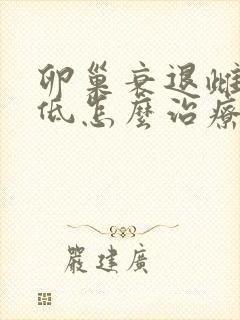 卵巢衰退雌
低怎麼治療
嚴建廣